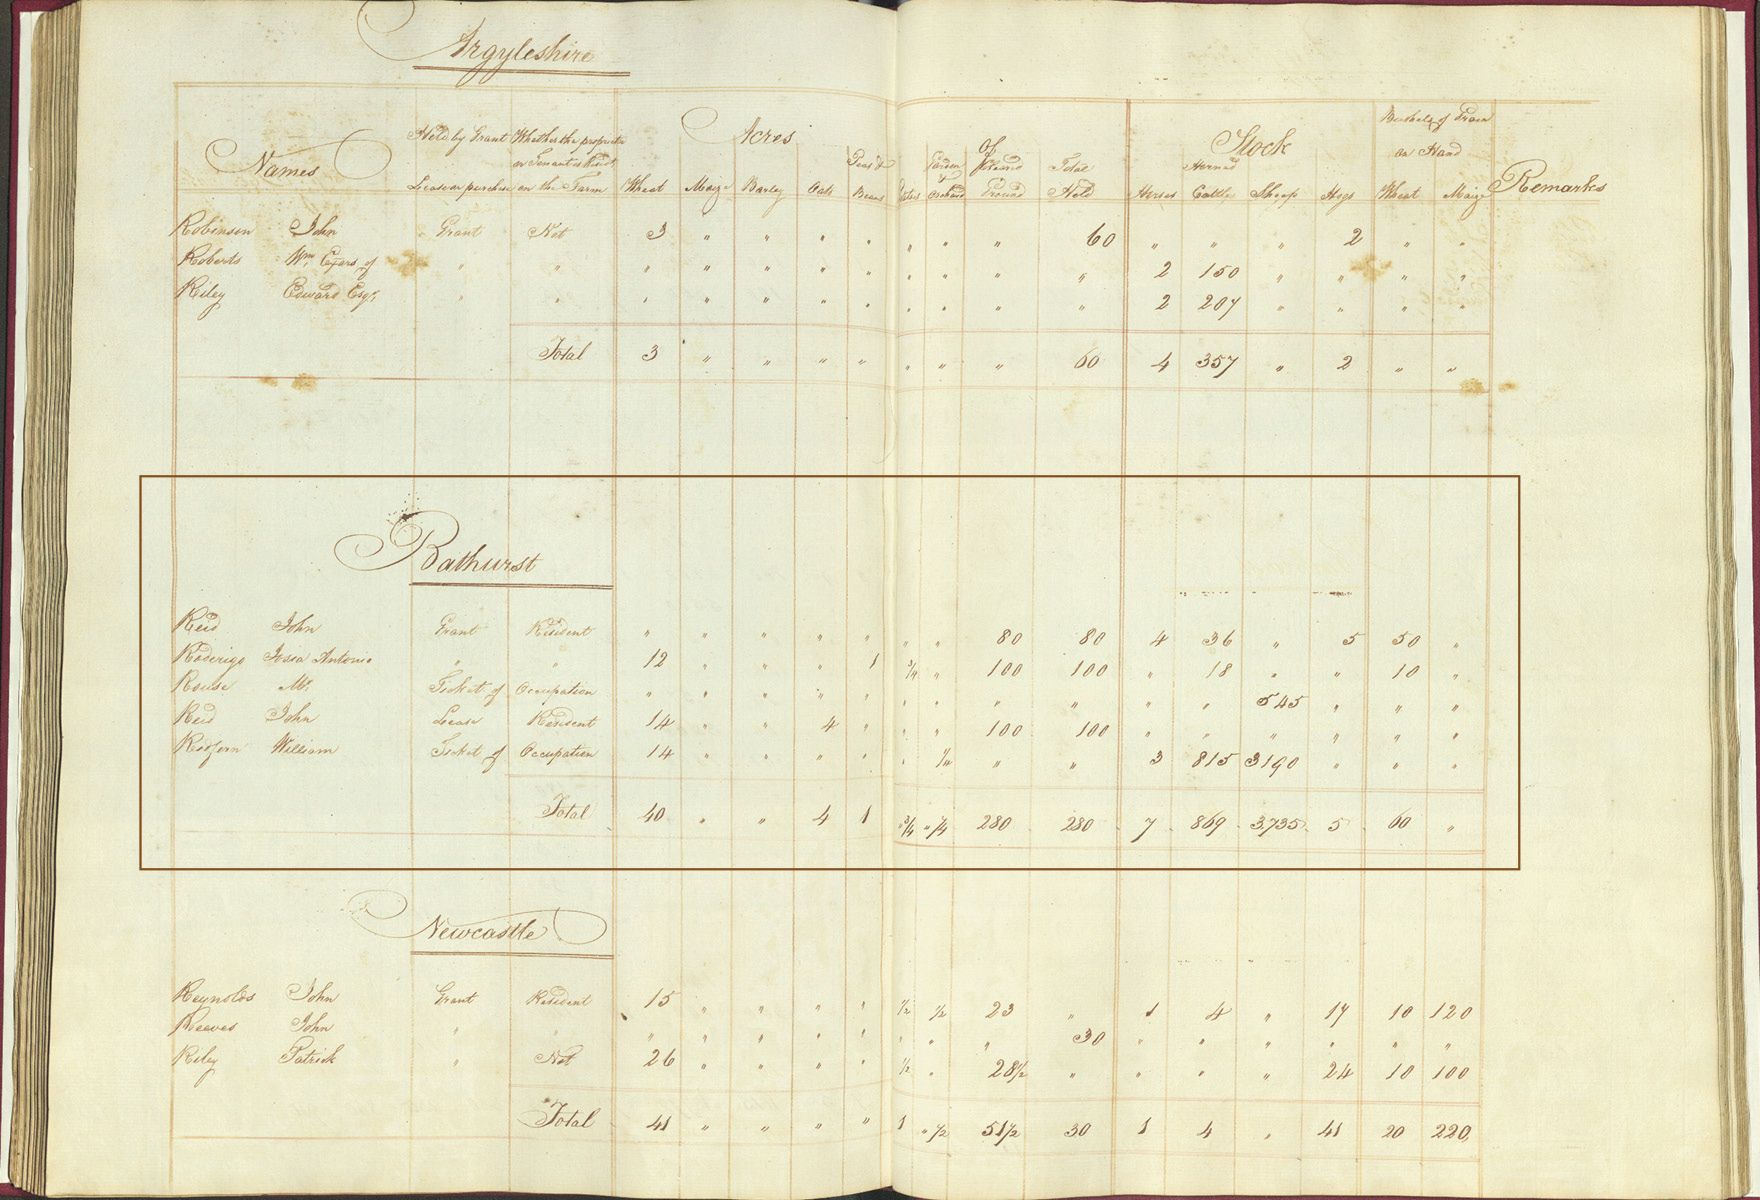 Argyleshire
Names Held by Grant Lease or purchase Whether the proprietor or Tenant is Resident on the Farm Acres Wheat Maize Barley Oats Peas & Beans Garden & Orchard Of Cleared Ground Total Held Stock Horses Horned Cattle Sheep Hogs Bushels of Grain on Hand Wheat Maize Remarks
Robinson John Grant Not 3 " " " " " " " 60 " " " 2 " "
Roberts Wm. of " " " " " " " " " " " 2 150 " " " "
Riley Edward Esqr. " " " " " " " " " " " 2 207 " " " "
Total 3 " " " " " " " 60 4 357 " 2 " "
Bathurst
Reid John Grant Resident " " " " " " " 80 80 4 36 " 5 50 "
Roderigo Antonio " " 12 " " " 1 3/4 " 100 100 " 18 " " 10 "
Rouse Mr. Ticket of Occupation " " " " " " " " " " " 545 " " "
Reid John Lease Resident 14 " " 4 " " " 100 100 " " " " " "
Redfern William Ticket of Occupation 14 " " " " " 1/4 " " 3 815 3190 " " "
Total 40 " " 4 1 " 3/4 " 1/4 280 280 7 869 3735 5 60 "
Newcastle
Reynolds John Grant Resident 15 " " " " 1/2 1/2 23 " 1 4 " 17 10 120
Reeves John " " " " " " " " " " 30 " " " " " "
Riley Patrick " Not 26 " " " " 1/2 " 28 1/2 " " " " 24 10 100
Total 41 " " " " 1 " 1/2 51 1/2 30 1 4 " 41 20 220